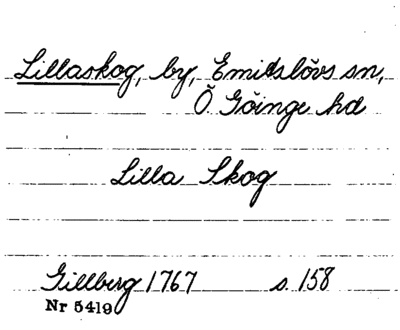 Lillaskog, by, Emitslövs sn,
Ö Göinge hd
Lilla Skog
Gillberg 1767 s. 158
Nr 5419